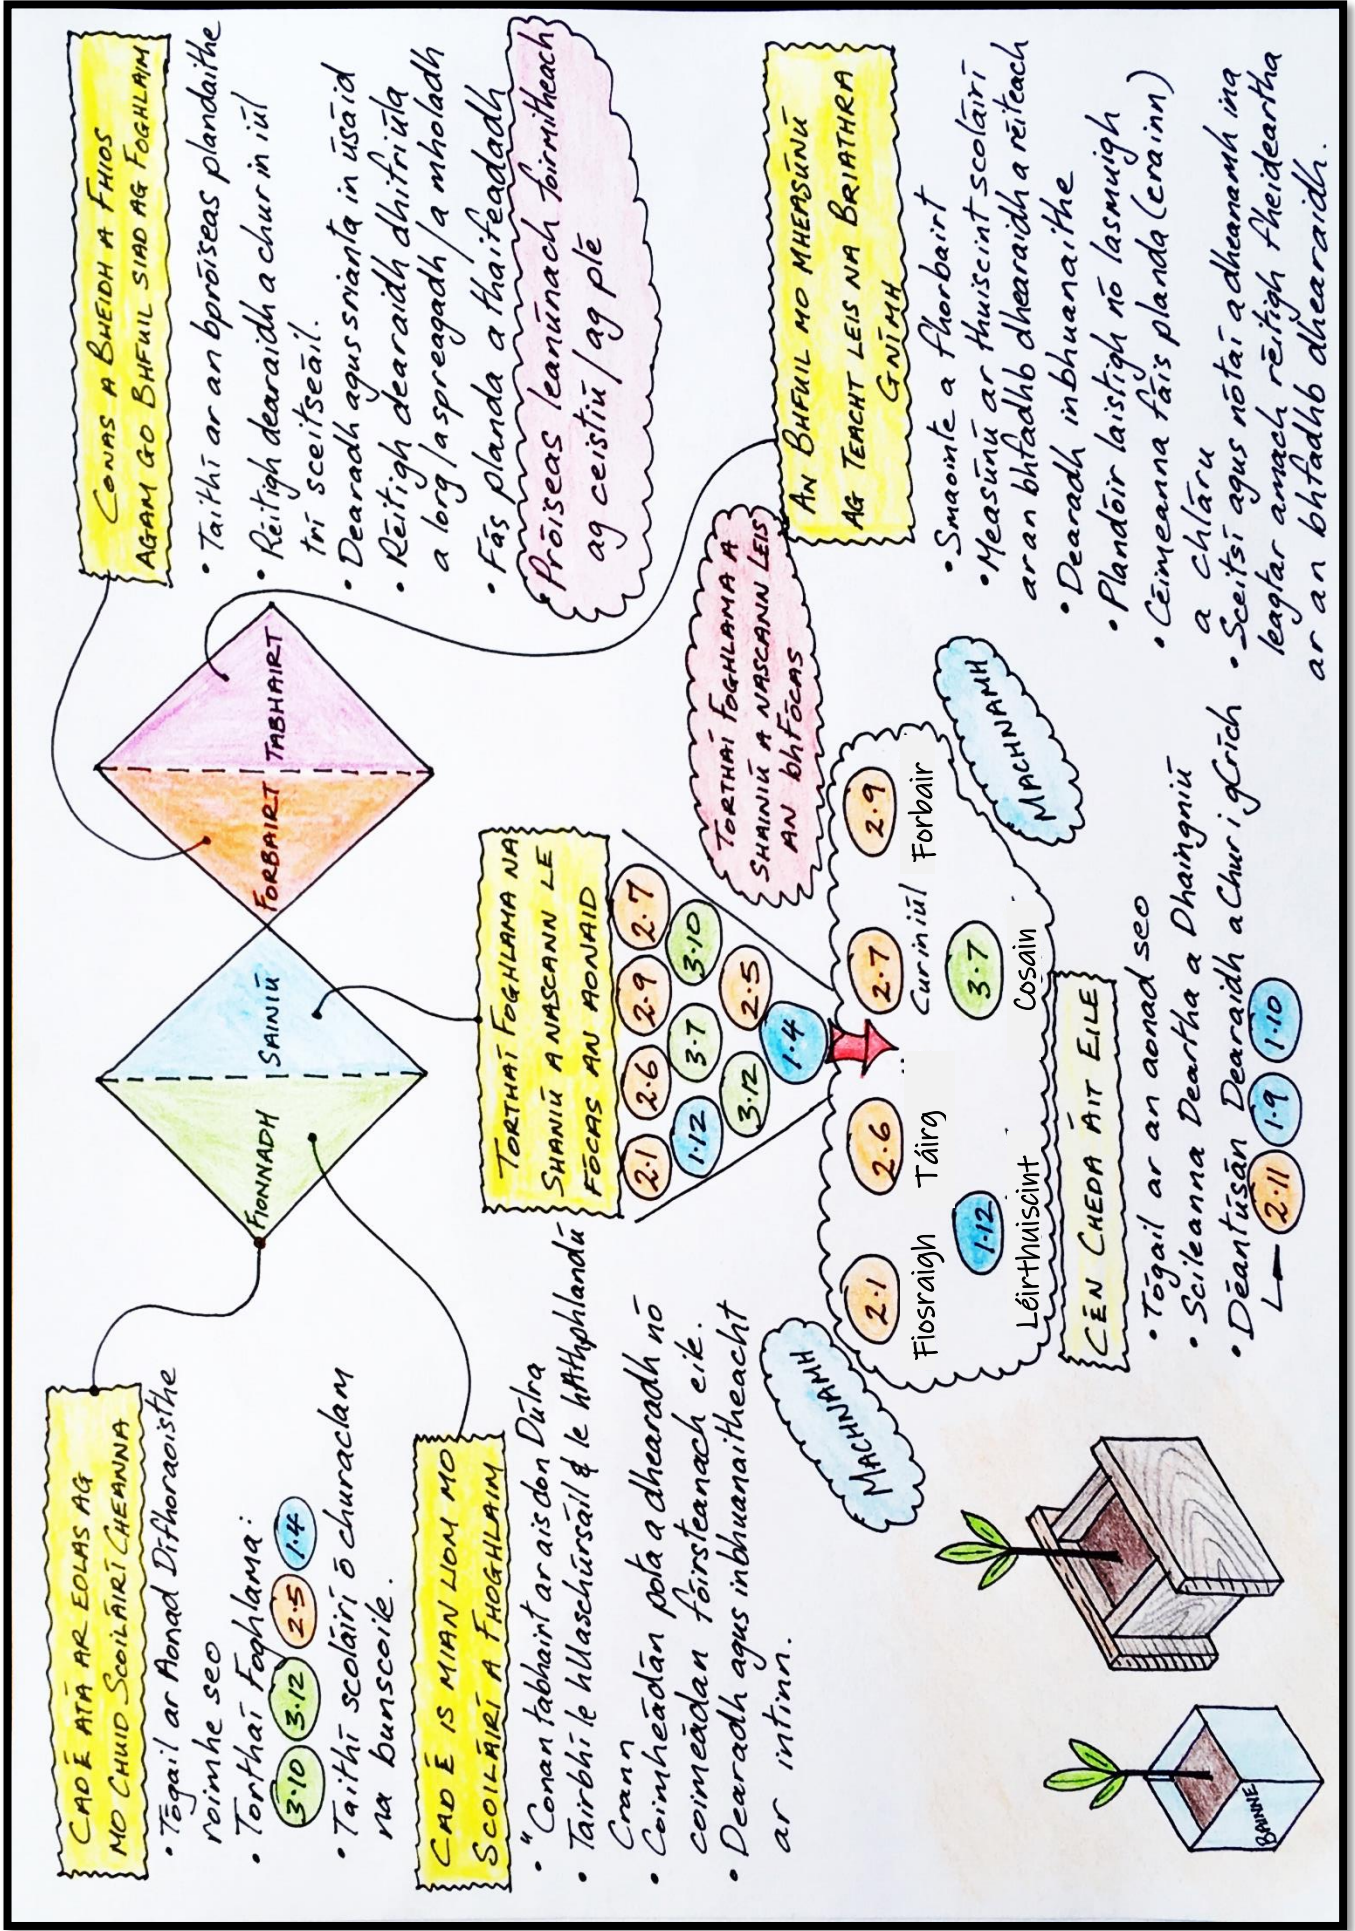 CAD É ATÁ AR EOLAS AG
MO CHUID SCOILÁIRÍ CHEANNA
• Tógail ar Aonad Difhoraoisthe
roimhe seo
• Torthaí Foghlama:
3.10 3.12 2.5 1.4
• Taithí scoláirí ó churaclam
na bunscoile.
CAD É IS MIAN LIOM MO
SCOILÁIRÍ A FHOGHLAIM
• "Conan tabhairt ar ais don Dúlra
• Tairbhí le hUaschúrsáil & le hAthphlandú
Crann
• Coimheádán pota a dhearadh nó
coimeádan fóirsteanach eile.
• Dearadh agus inbhuanaitheacht
ar intinn.
FIONNADH
SAINIÚ
FORBAIRT
TABHAIRT
TORTHAÍ FOGHLAMA NA
SHANIÚ A NASCANN LE
FÓCAS AN AONAID
2.1 2.6 2.9 2.7
1.12 3.7 3.10
3.12 2.5
1.4
TORTHAÍ FOGHLAMA A
SHAINIÚ A NASCANN LEIS
AN BHFÓCAS
MACHNAMH
2.1 2.6 2.7 2.9
Fiosraigh Táirg Cur in iúl Forbair
1.12 3.7
Léirthuiscint Cosain
MACHNAMH
CÉN CHEDA ÁIT EILE
• Tógail ar an aonad seo
• Scileanna Deartha a Dhaingniú
• Déantúsán Dearaidh a Chur i gCrích
2.11 1.9 1.10
CONAS A BHEIDH A FHIOS
AGAM GO BHFUIL SIAD AG FOGHLAIM
• Taithí ar an bpróiseas plandaithe
• Réitigh dearaidh a chur in iúl
trí sceitseáil.
• Dearadh agus srianta in úsáid
• Réitigh dearaidh dhifriúla
a lorg/a spreagadh/a mholadh
• Fás planda a thaifeadadh
Próiseas leanúnach foirmitheach
ag ceistiú/ag plé
AN BHFUIL MO MHEASÚNÚ
AG TEACHT LEIS NA BRIATHRA
GNÍMH
• Smaointe a fhorbairt
• Measúnú ar thuiscint scoláirí
ar an bhfadhb dhearaidh a réiteach
• Dearadh inbhuanaithe
• Plandóir laistigh nó lasmuigh
• Céimeanna fáis planda (crainn)
a chlárú
• Sceitsí agus nótaí a dheanamh ina
leagtar amach réitigh fheideartha
ar an bhfadhb dhearaidh.
BAINNE